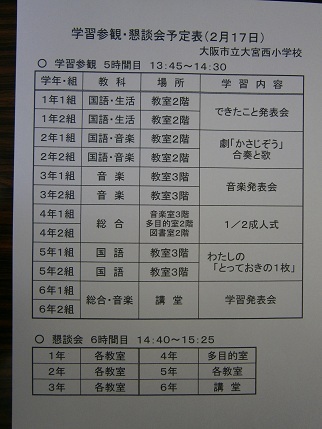 学習参観・懇談会予定表(2月17日)
大阪市立大宮西小学校
○ 学習参観 5時間目 13:45~14:30
学年・組 教科 場所 学習内容
1年1組 国語・生活 教室2階 できたこと発表会
1年2組 国語・生活 教室2階
2年1組 国語・音楽 教室2階 劇「かさじぞう」
2年2組 国語・音楽 教室2階 合奏と歌
3年1組 音楽 教室3階 音楽発表会
3年2組 音楽 教室3階
4年1組 総合 音楽室3階 1/2成人式
多目的室2階
4年2組 図書室2階
5年1組 国語 教室3階 わたしの
5年2組 国語 教室3階 「とっておきの1枚」
6年1組 総合・音楽 講堂 学習発表会
6年2組
○ 懇談会 6時間目 14:40~15:25
1年 各教室 4年 多目的室
2年 各教室 5年 各教室
3年 各教室 6年 講堂